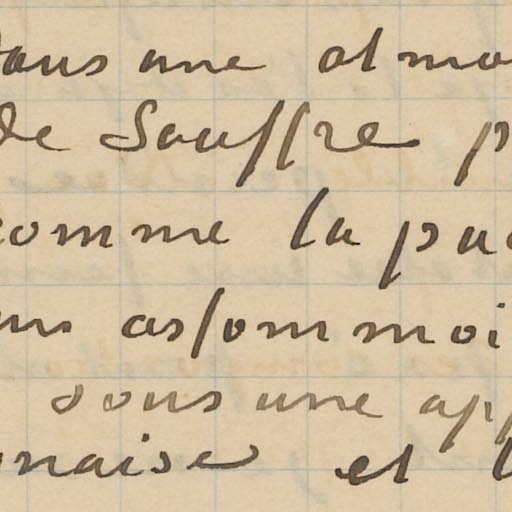 dans une atmo
de Souffre p
comme la pu
un assommoi
sous une app
naise et l